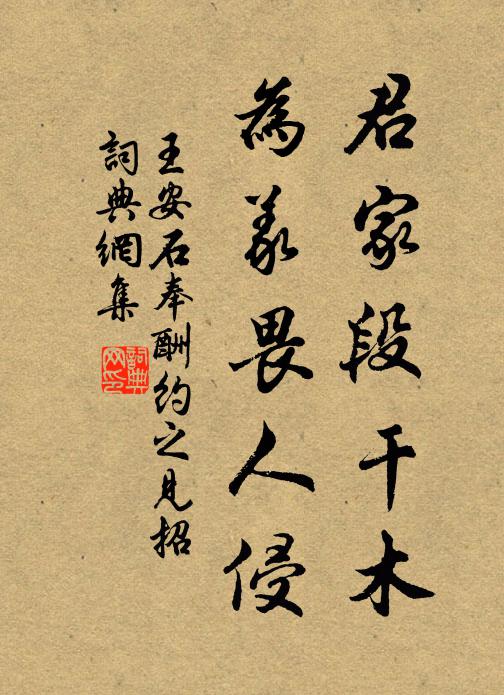 君家段干木
為義畏人侵
王安石奉酬約之見招
詞典網集
詞典
网印